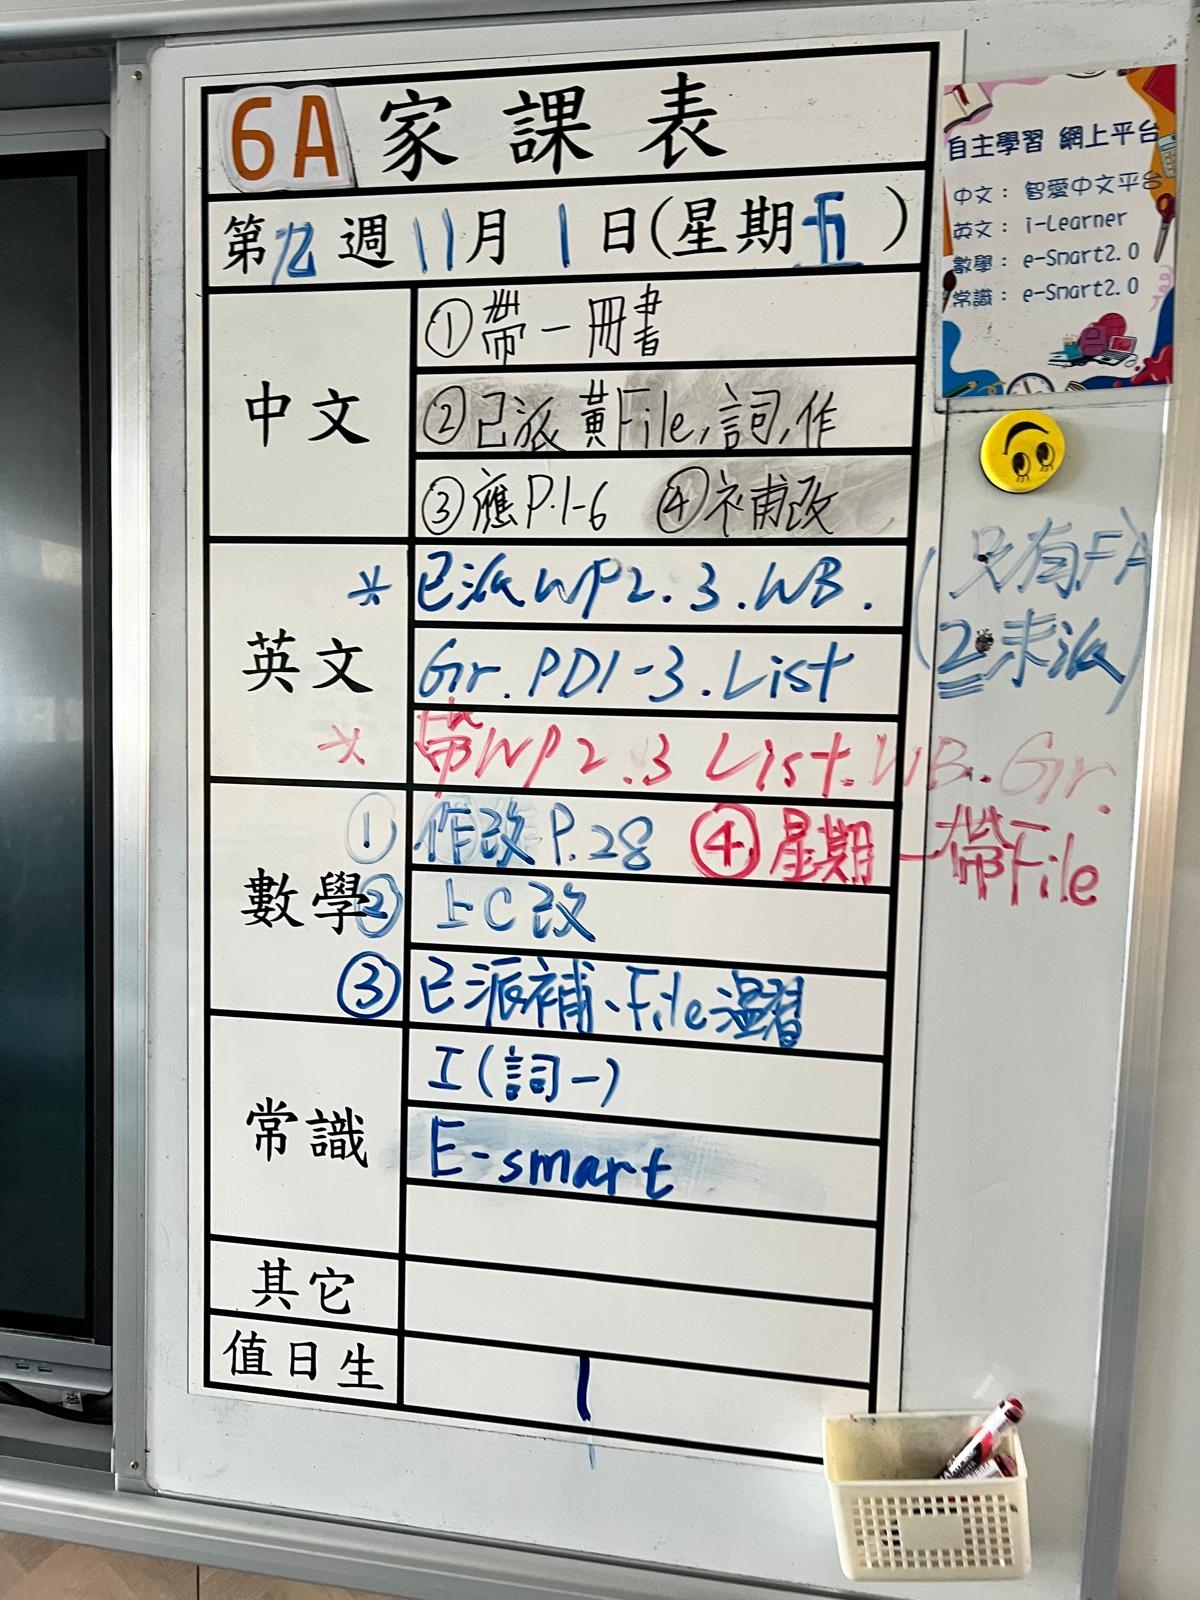 6A 家課表
第九週 11月 1日(星期五)
中文
① 帶一冊書
② 已派黃File,詞,作
③ 應P.1-6 ④ 補改
英文
* 已派WP2.3.WB.
(只有FA
2未派)
Gr.PD1-3.List
* 帶WP2.3 List.WB.Gr.
數學
① 作改P.28 ④ 星期一帶File
② 上C改
③ 已派補、File溫習
常識
I(詞一)
E-smart
其它
值日生 1
自主學習 網上平台
中文: 智愛中文平台
英文: i-Learner
數學: e-Smart2.0
常識: e-Smart2.0